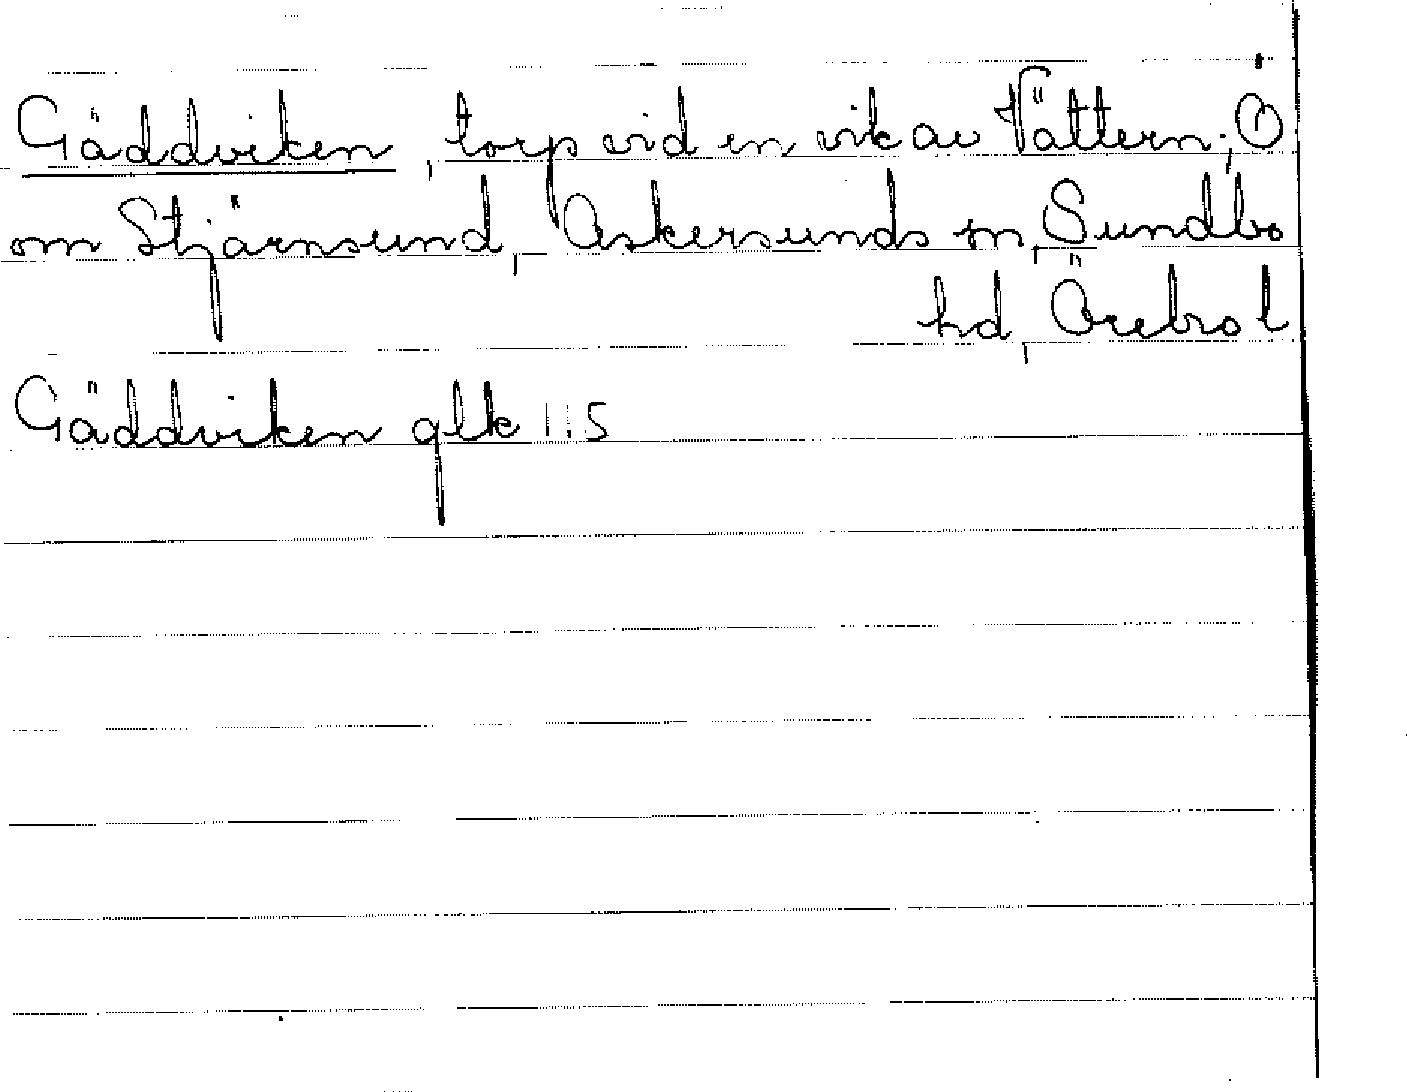 Gäddviken, torp vid en vik av Vättern; Ö
om Stjärnsund, Askersunds sn, Sundbo
hd, Örebro l
Gäddviken glk 1:5